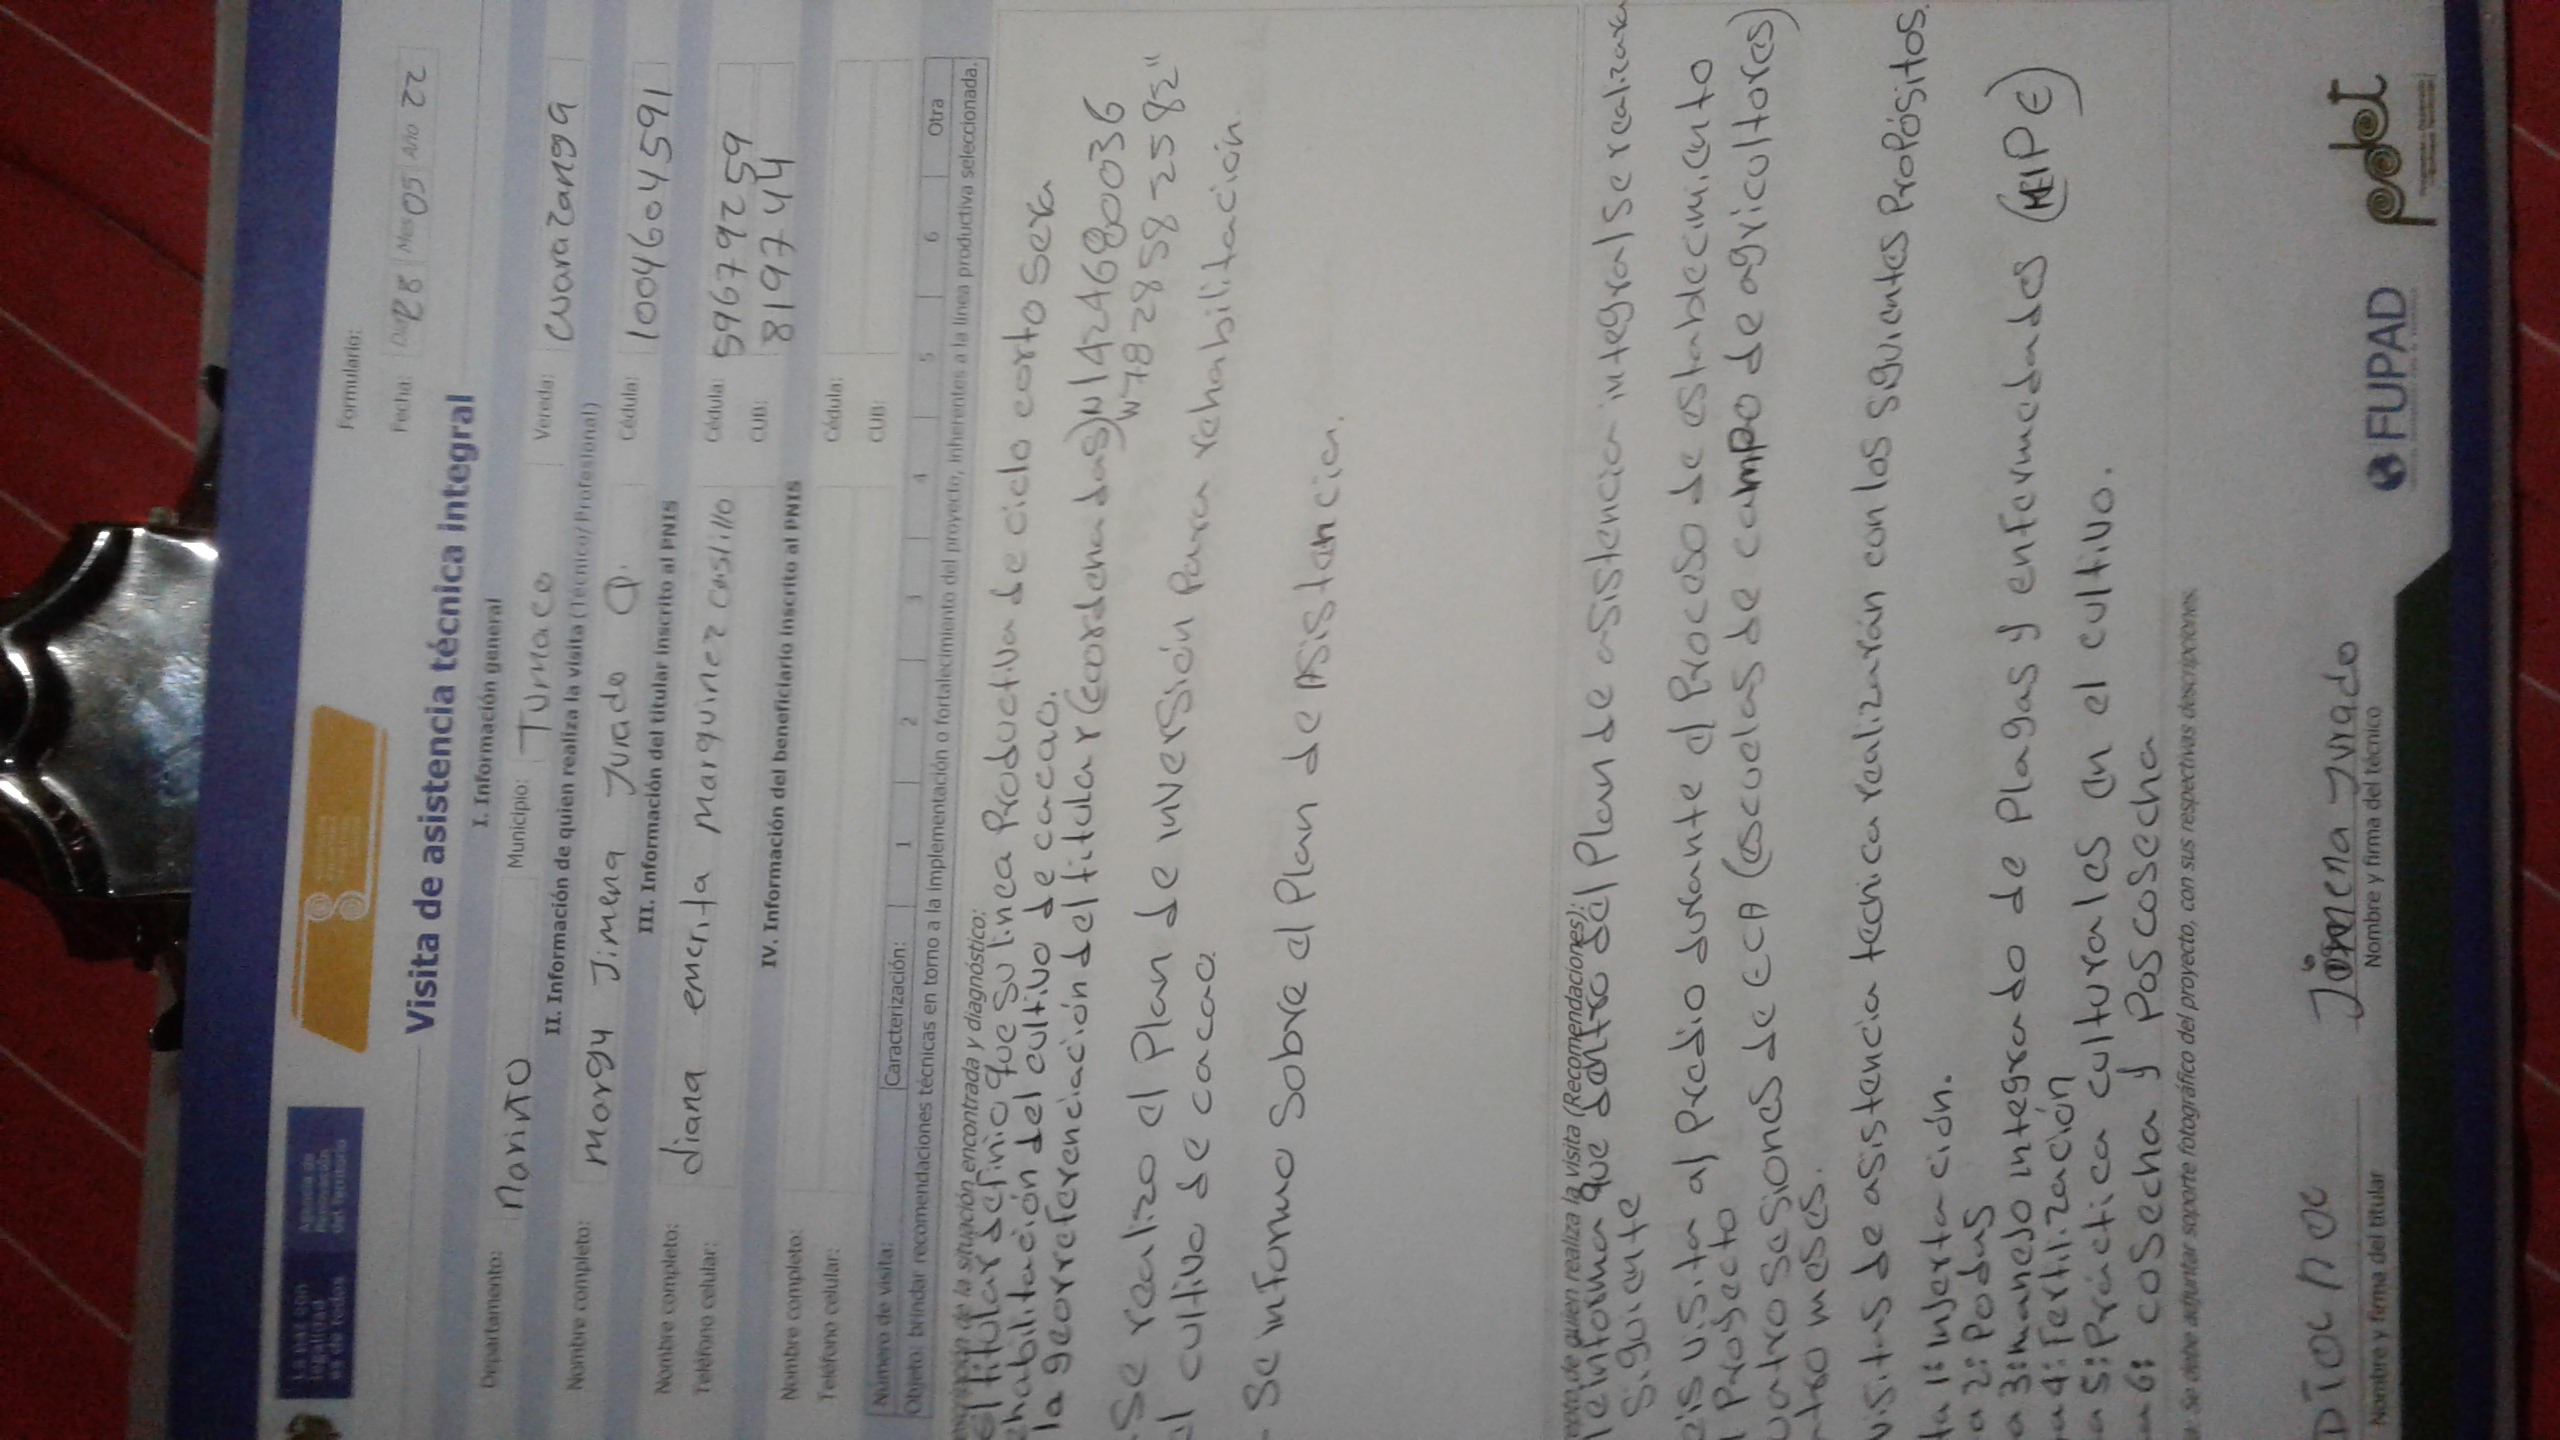 La paz con legalidad es de todos
Agencia de Renovación del Territorio
Formulario:
Visita de asistencia técnica integral
Fecha: Día 28 Mes 05 Año 22
I. Información general
Departamento: Nariño Municipio: Tumaco Vereda: Guarazanga
II. Información de quien realiza la visita (Técnico/Profesional)
Nombre completo: Margy Jimena Jurado Q. Cédula: 1004604591
III. Información del titular inscrito al PNIS
Nombre completo: diana emerita Marquinez Castillo Cédula: 59679259
Teléfono celular: CUB: 819744
IV. Información del beneficiario inscrito al PNIS
Nombre completo: Cédula:
Teléfono celular: CUB:
Número de visita: Caracterización: 1 2 3 4 5 6 Otra
Objeto: brindar recomendaciones técnicas en torno a la implementación o fortalecimiento del proyecto, inherentes a la línea productiva seleccionada.
de la situación encontrada y diagnóstico:
el titular definio que su linea Productiva de ciclo corto sera
habilitación del cultivo de cacao.
la georreferenciación del titular (cordenadas) N 1424680036
W-78 2858 2582"
-Se realizo el Plan de inversión Para rehabilitación
al cultivo de cacao.
- Se informo Sobre el Plan de Asistencia.
de quien realiza la visita (Recomendaciones):
le informa que dentro del Plan de asistencia integral se realizara
Siguiente
eis visita al Predio durante el Proceso de establecimiento
l Proyecto
uatro sesiones de ECA (escuelas de campo de agricultores)
ntro meses.
visitas de asistencia tecnica realizarán con los siguientes Propósitos.
ta 1: injertación.
a 2: Podas
a 3: manejo integrado de Plagas y enfermedades (MIPE)
a 4: Fertilización
a 5: Práctica culturales en el cultivo.
a 6: cosecha y Poscosecha
se debe adjuntar soporte fotográfico del proyecto, con sus respectivas descripciones.
Jimena Jurado
Nombre y firma del titular
Nombre y firma del técnico
FUPAD
pdet